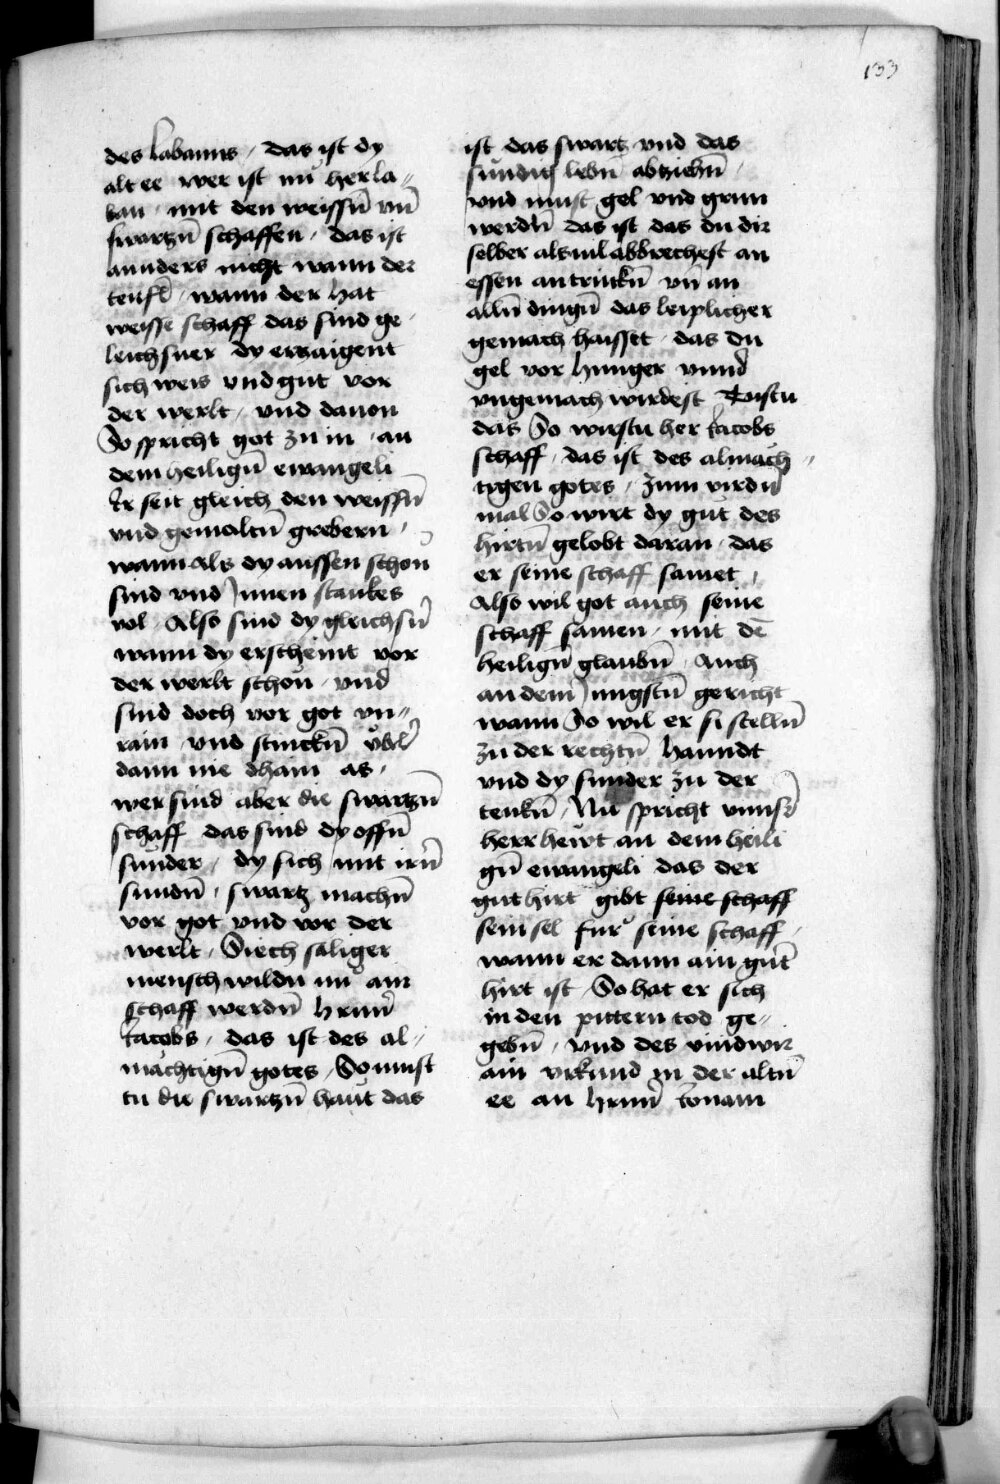 133
des labanns / das ist dy
alt ee wer ist nu her la„
ban · mit den weissn̄ vn̄
swartzn̄ schaffen / das ist
annders nicht wann der
teufl̄ / wann der hat
weisse schaff das sind ge
leichsner dy erzaigent
sich weis vnd gut vor
der werlt / vnd dauon
So spricht got zu in · an
dem heilign̄ ewangeli
Ir seit gleich den weissn̄
vnd gemaltn̄ grebern /
wann als dy aussen schon
sind vnd Innen stankes
vol · Also sind dy gleichsn̄
wann dy erscheint vor
der werlt schon · vnd
sind doch vor got vn„
rain vnd stinckn̄ vbl̄
dann nie dhain as /
wer sind aber die swartzn̄
schaff das sind dy offn̄
sunder / dy sich mit irn̄
sundn̄ / swartz machn̄
vor got vnd vor der
werlt / Siech saliger
mensch wildu nu ain
schaff werdn̄ hrnn̄
Jacobs / das ist des al„
mächtign̄ gotes / So must
tu die swartzn̄ haut das
ist das swartz vnd das
sundig lebn̄ abziehn̄ /
vnd must gel vnd grun
werdn̄ das ist das du dir
selber alsuil abbrechest an
essen an trinckn̄ vn̄ an
alln̄ dingn̄ das leiplicher
gemach haisset · das du
gel vor hunger vnnd
vngemach wirdest Tustu
das So wirstu her Jacobs
schaff / das ist des almäch„
tigen gotes / Zum virdn̄
mal So wirt dy gut des
hirtn̄ gelobt daran · das
er seine schaff samet /
Also wil got auch seine
schaff samen / mit dē
heilign̄ glaubn̄ / Auch
an dem Jungstn̄ gericht
wann So wil er si stelln̄
zu der rechtn̄ hanndt
vnd dy sunder zu der
tenkn̄ / Nu spricht vnnsr̄
herr hewt an dem heili
gn̄ ewangeli das der
gut hirt gibt seine schaff
sein sel fur seine schaff /
wann er dann ain gut̄
hirt ist / So hat er sich
in den pittern tod ge„
gebn̄ / vnd des vindwir
ain vrkund in der altn̄
ee an hrnn̄ Jonam